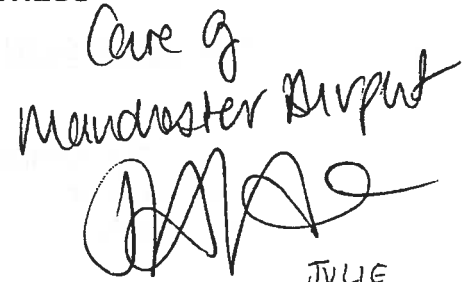 Care of
Manchester Airport
JULIE